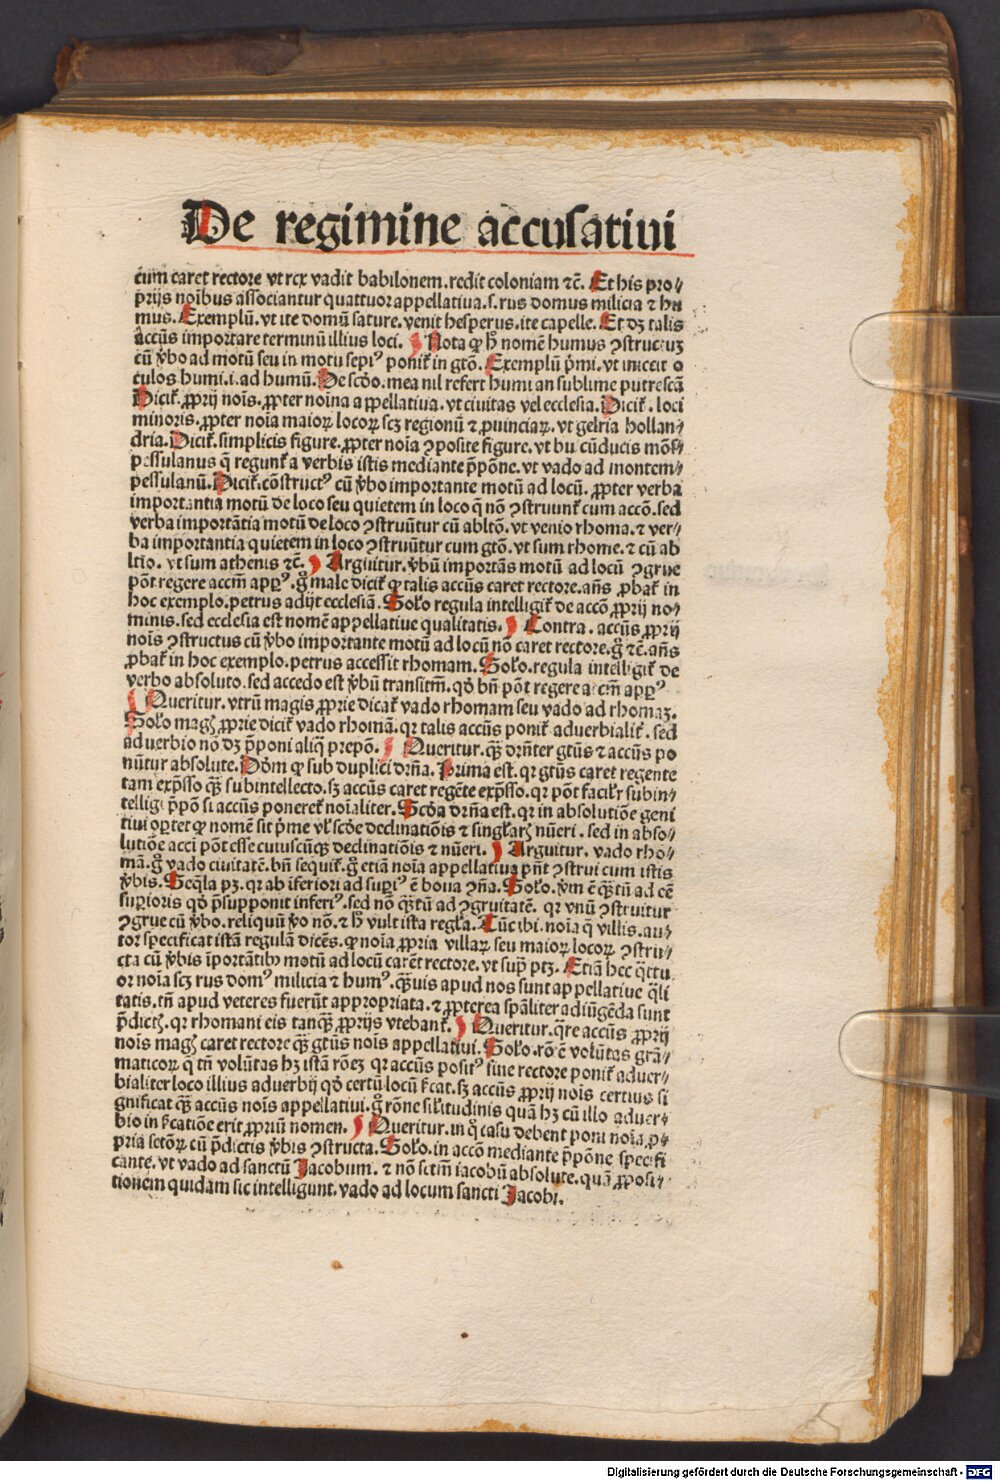 De regimine accusatiui
cium caret rectore vt rex vadit babilonem.redit coloniam ⁊c̄. Et his pro⸗
prijs noībus associantur quattuor appellatiua.s. rus domus milicia ⁊ hu
mus. Exemplū. vt ite domū sature. venit hesperus. ite capelle. Et dꝫ talis
accūs importare terminū illius loci. Nota ꝙ h̄ nomē humus ꝯstructuꝫ
cū v̄bo ad motū seu in motu sepiꝰ poniꝉ in gtō. Exemplū p̄mi. vt iniecit o
culos humi.i.ad humū. De scd̄o. mea nil refert humi an sublime putrescā
Diciꝉ. ꝓprij noīs. ꝓpter noīna appellatiua. vt ciuitas vel ecclesia. Diciꝉ. loci
minoris. ꝓpter noīa maioꝝ locoꝝ scꝫ regionū ⁊ ꝓuinciaꝝ. vt gelria hollan⸗
dria. Diciꝉ. simplicis figure. ꝓpter noīa ꝯposite figure. vt hu cūducis mōs⸗
pessulanus q̄ regunꝉ a verbis istis mediante p̄pōne. vt vado ad montem⸗
pessulanū. Diciꝉ. cōnstructꝰ cū v̄bo importante motū ad locū. ꝓpter verba
importantia motū de loco seu quietem in loco q̄ nō ꝯstruunꝉ cum accō. sed
verba importātia motū de loco ꝯstruūtur cū abltō. vt venio rhoma. ⁊ ver⸗
ba importantia quietem in loco ꝯstruūtur cum gtō. vt sum rhome. ⁊ cū ab
ltīo. vt sum athenis ⁊c̄. Arguitur. v̄bū importās motū ad locū ꝯgrue
pōt regere accm̄ apꝑꝰ. g̊ male diciꝉ ꝙ talis accūs caret rectore. añs ꝓbaꝉ in
hoc exemplo. petrus adijt ecclesiā. Solꝰo regula intelligiꝉ de accō ꝓprij no⸗
minis. sed ecclesia est nomē appellatiue qualitatis. Contra. accūs ꝓprij
noīs ꝯstructus cū v̄bo importante motū ad locū nō caret rectore. g̊ ⁊c̄. añs
ꝓbaꝉ in hoc exemplo. petrus accessit rhomam. Solꝰo. regula intelligiꝉ de
verbo absoluto. sed accedo est v̄bū transitm̄. qd̄ bñ pōt regere accm̄ apꝑꝰ.
Queritur. vtrū magis ꝓprie dicaꝉ vado rhomam seu vado ad rhomaꝫ.
Solꝰo magꝭ ꝓprie diciꝉ vado rhomā. qꝛ talis accūs poniꝉ aduerbialiꝉ. sed
aduerbio nō dꝫ p̄poni aliq̄ prepō. Queritur. qͣꝫ dr̄nter gtūs ⁊ accūs po
nūtur absolute. Dd̄m ꝙ sub duplici dr̄ña. Prima est. qꝛ gtūs caret regente
tam exp̄sso qͣꝫ subintellecto. sꝫ accūs caret regēte exp̄sso. qꝛ pōt facilꝛ subin⸗
telligi p̄pō si accūs ponereꝉ noīaliter. Scd̄a dr̄ña est. qꝛ in absolutiōe geni
tiui oꝑtet ꝙ nomē sit p̄me vꝉ scd̄e declinatiōis ⁊ singꝉarꝭ nūeri. sed in abso⸗
lutiōe acci pōt esse cuiuscūqꝫ declinatiōis ⁊ nūeri. Arguitur. vado rho⸗
mā. g̊ vado ciuitatē. bñ sequiꝉ. g̊ etiā noīa appellatiua pñt ꝯstrui cum istis
v̄bis. Seq̄la pꝫ. qꝛ ab īferiori ad suꝑiꝰ ē bona ꝯña. Solꝰo. v̄m ē qͣꝫtū ad eē
suꝑioris qd̄ p̄supponit inferiꝰ. sed nō qͣꝫtū ad ꝯgruitatē. qꝛ vnū ꝯstruitur
ꝯgrue cū v̄bo. reliquū v̄o nō. ⁊ h̄ vult ista regꝉa. Tūc ibi. noīa q̄ villis. au⸗
tor specificat istā regulā dicēs. ꝙ noīa ꝓpria villaꝝ seu maioꝝ locoꝝ ꝯstru⸗
cta cū v̄bis īportātibꝰ motū ad locū carēt rectore. vt supͣ ptꝫ. Etiā hec qͣttu
or noīa scꝫ rus domꝰ milicia ⁊ humꝰ. qͣꝫuis apud nos sunt appellatiue q̄li
tatis. tn̄ apud veteres fuerūt appropriata. ⁊ ꝓpterea spāliter adiūgēda sunt
p̄dictꝭ. qꝛ rhomani eis tanqͣꝫ ꝓprijs vtebanꝉ. Queritur. q̄re accūs ꝓprij
noīs magꝭ caret rectore qͣꝫ gtūs noīs appellatiui. Solꝰo. rō ē volūtas grā⸗
maticoꝝ q̄ tn̄ volūtas hꝫ istā rōeꝫ. qꝛ accūs positꝰ sine rectore poniꝉ aduer⸗
bialiter loco illius aduerbij qd̄ certū locū sͥcat. sꝫ accūs ꝓprij noīs certius si
gnificat qͣꝫ accūs noīs appellatiui. g̊ rōne silꝰitudinis quā hꝫ cū illo aduer⸗
bio in sͥcatiōe erit ꝓpriū nomen. Queritur. in q̊ casu debent poni noīa ꝓ⸗
pria sctōꝝ cū p̄dictis v̄bis ꝯstructa. Solꝰo. in accō mediante p̄pōne specifi
cante. vt vado ad sanctū Jacobum. ⁊ nō sctm̄ iacobū absolute. quā ꝓposi⸗
tionem quidam sic intelligunt. vado ad locum sancti Jacobi.
Digitalisierung gefördert durch die Deutsche Forschungsgemeinschaft - DFG